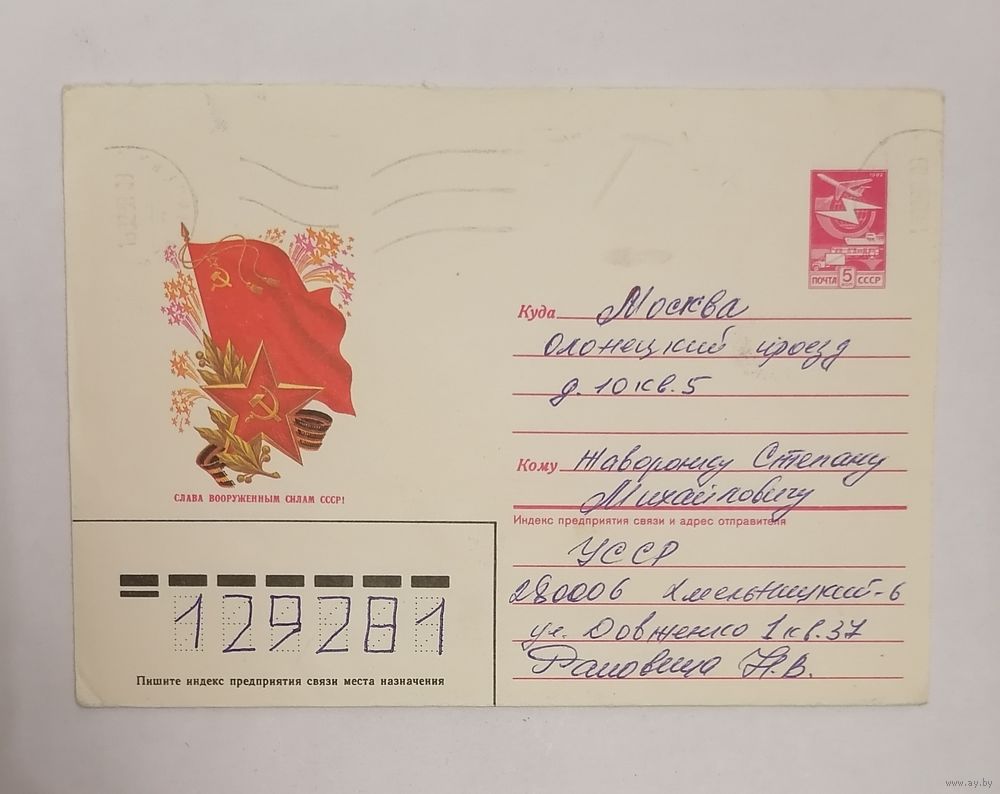 1982
ПОЧТА 5 КОП СССР
Куда Москва
Олонецкий проезд
д. 10 кв. 5
Кому Жаворонку Степану
Михайловичу
СЛАВА ВООРУЖЕННЫМ СИЛАМ СССР!
Индекс предприятия связи и адрес отправителя
УССР
280006 Хмельницкий-6
ул. Довженко 1 кв. 37
Н.В.
129281
Пишите индекс предприятия связи места назначения
www.ay.by